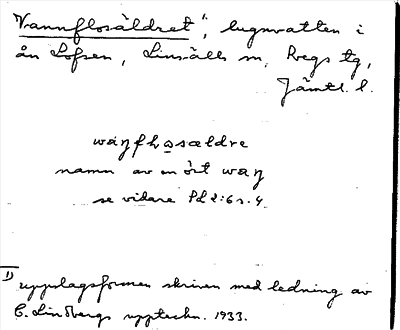 Vannflosäldret¹⁾, lugnvatten i
ån Lofsen, Linsälls sn, Bergs tg,
Jämtl. l.
waŋfłosældre
namn av en ört waŋ
se vidare Pd 2:6 s. 4.
1) uppslagsformen skriven med ledning av
C. Lindbergs uppteckn. 1933.